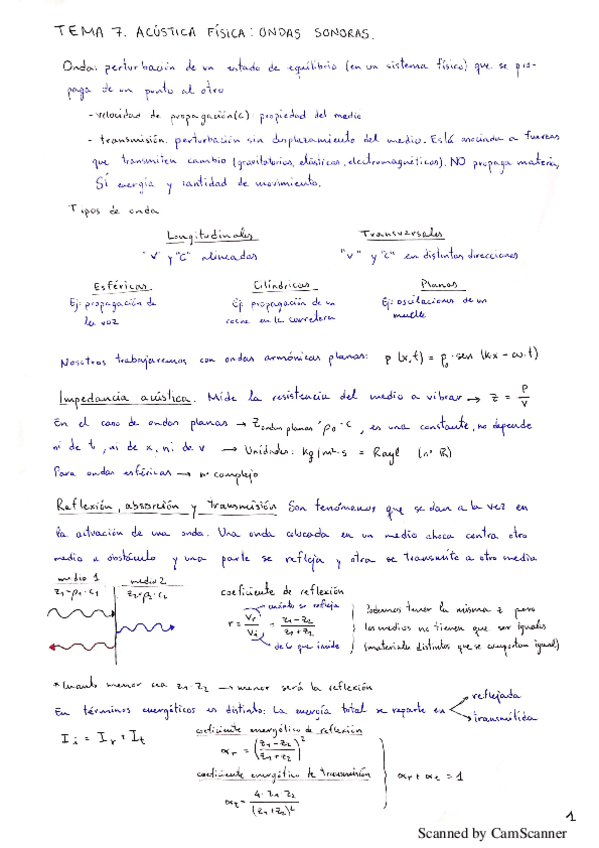 TEMA 7. ACÚSTICA FÍSICA: ONDAS SONORAS.
Onda: perturbación de un estado de equilibrio (en un sistema físico) que se pro-
paga de un punto al otro
- velocidad de propagación (c): propiedad del medio
- transmisión: perturbación sin desplazamiento del medio. Está asociada a fuerzas
que transmiten cambio (gravitatorias, elásticas, electromagnéticas). NO propaga materia,
SÍ energía y cantidad de movimiento.
Tipos de onda
Longitudinales Transversales
"v" y "c" alineadas "v" y "c" en distintas direcciones
Esféricas Cilíndricas Planas
Ej: propagación de Ej: propagación de un Ej: oscilaciones de un
la voz coche en la carretera muelle
Nosotros trabajaremos con ondas armónicas planas: p (x,t) = p₀ · sen (k·x - ω·t)
Impedancia acústica. Mide la resistencia del medio a vibrar → z = p/v
En el caso de ondas planas → z ondas planas = ρ₀ · c, es una constante, no depende
ni de t, ni de x, ni de v → Unidades: kg/m²·s = Rayl (nº ℝ)
Para ondas esféricas → nº complejo
Reflexión, absorción y transmisión Son fenómenos que se dan a la vez en
la actuación de una onda. Una onda colocada en un medio choca contra otro
medio u obstáculo y una parte se refleja y otra se transmite a otro medio
medio 1 medio 2 coeficiente de reflexión
z₁ = ρ₁ · c₁ z₂ = ρ₂ · c₂
cuánto se refleja
r = Vr/Vi = z₁ - z₂/z₁ + z₂
de lo que incide
Podemos tener la misma z pero
los medios no tienen que ser iguales
(materiales distintos que se comportan igual)
* Cuanto menor sea z₁ - z₂ → menor será la reflexión
En términos energéticos es distinto: La energía total se reparte en
reflejada
transmitida
Ii = Ir + It
coeficiente energético de reflexión
αr = (z₁ - z₂/z₁ + z₂)²
coeficiente energético de transmisión
αt = 4 · z₁ · z₂/(z₁ + z₂)²
αr + αt = 1
1
Scanned by CamScanner